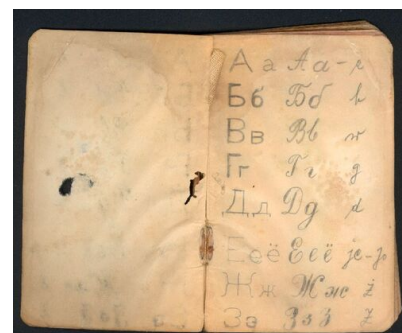 Аа Аа - a
Бб Бб b
Вв Вв w
Гг Гг g
Дд Дд d
Еeё Еeё je-jo
Жж Жж ż
Зз Зз з z